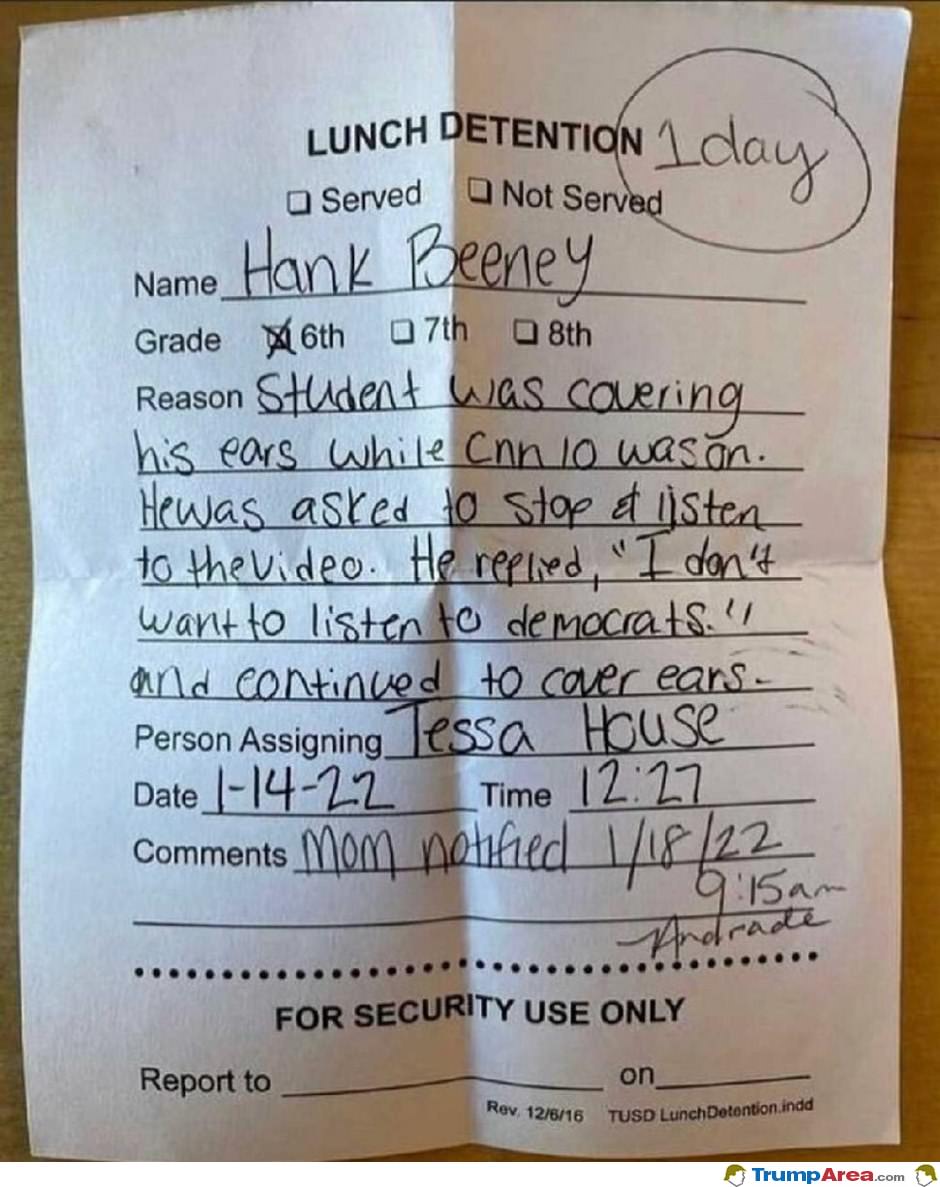 LUNCH DETENTION 1 day
☐ Served ☐ Not Served
Name Hank Beeney
Grade ☒ 6th ☐ 7th ☐ 8th
Reason Student was covering
his ears while Cnn 10 was on.
He was asked to stop & listen
to the video. He replied, "I don't
want to listen to democrats."
and continued to cover ears.
Person Assigning Tessa House
Date 1-14-22 Time 12:27
Comments Mom notified 1/18/22
9:15am
Andrade
FOR SECURITY USE ONLY
Report to on
Rev. 12/6/16 TUSD LunchDetention.indd
TrumpArea.com